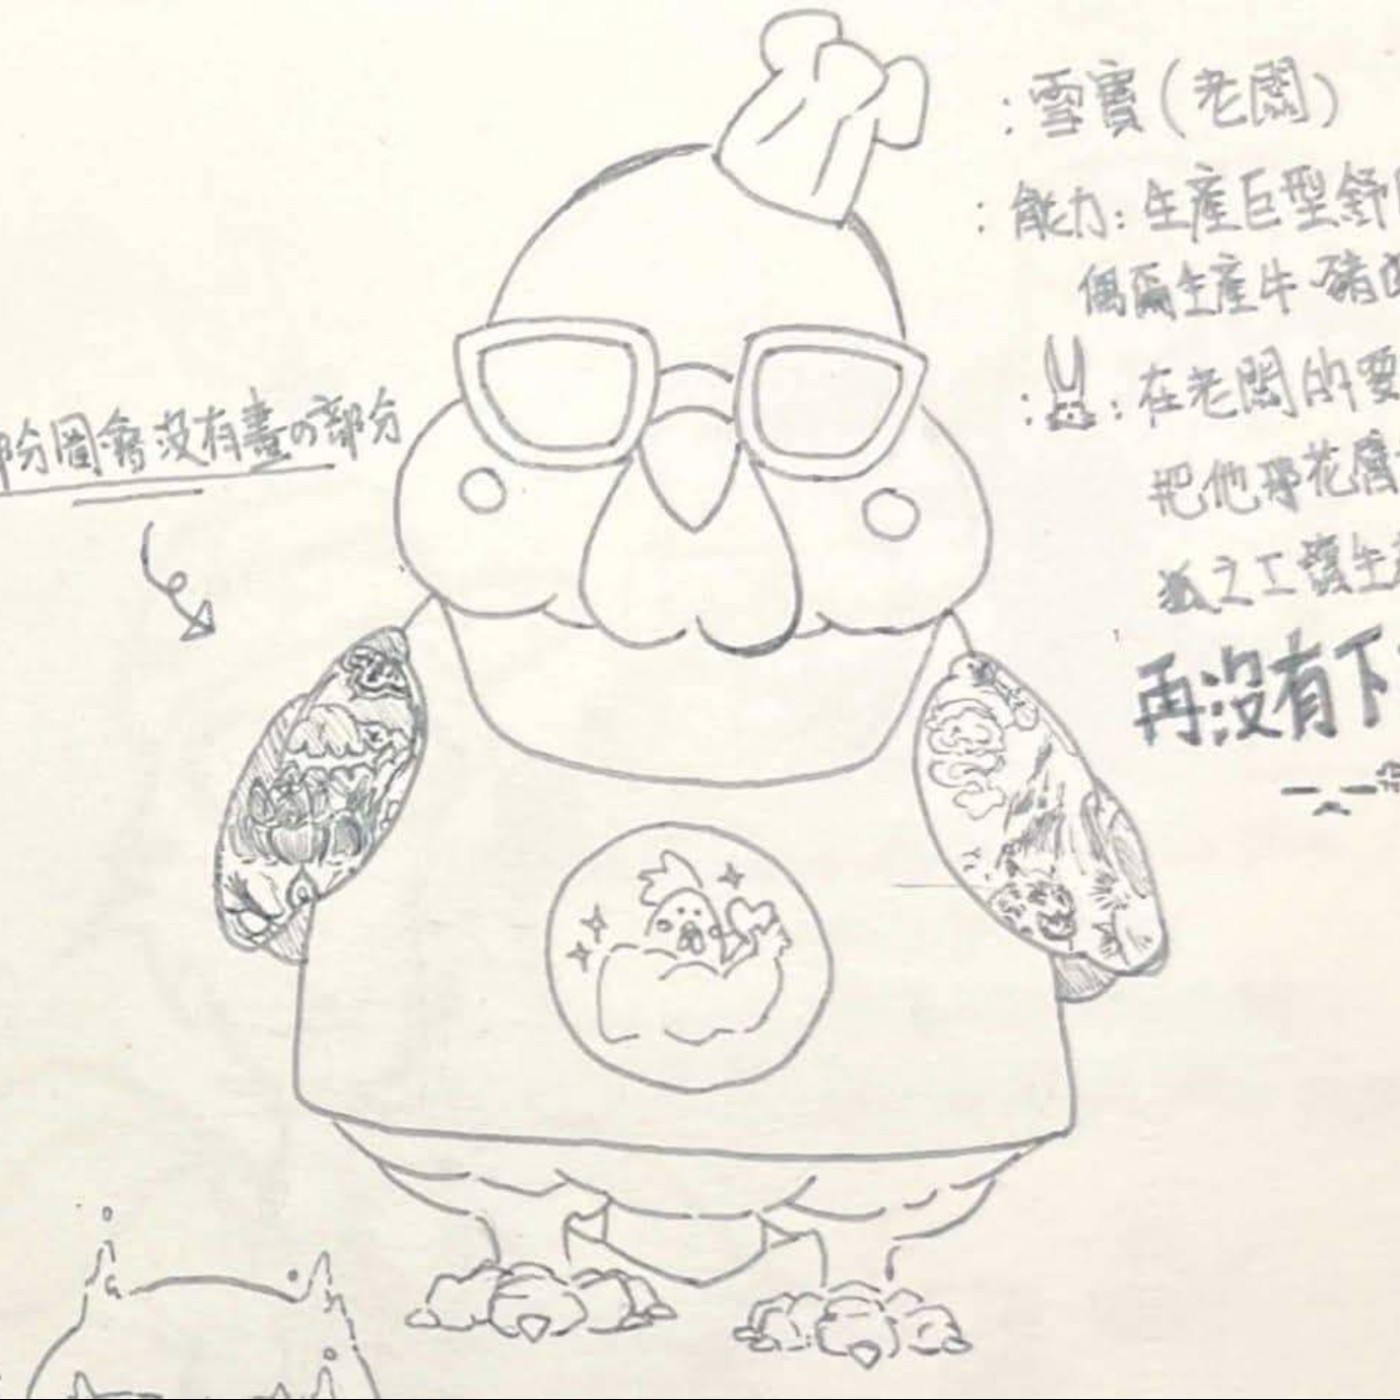 :雪寶(老闆)
:能力:生產巨型舒
偶爾生產牛.豬
:在老闆的要
把他那花
狐之工讓生
再沒有下
部分圖會沒有畫の部分